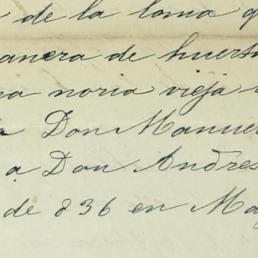 de la loma q
anera de huert
a noria vieja
Don Manue
a Don Andres
de 836 en Ma